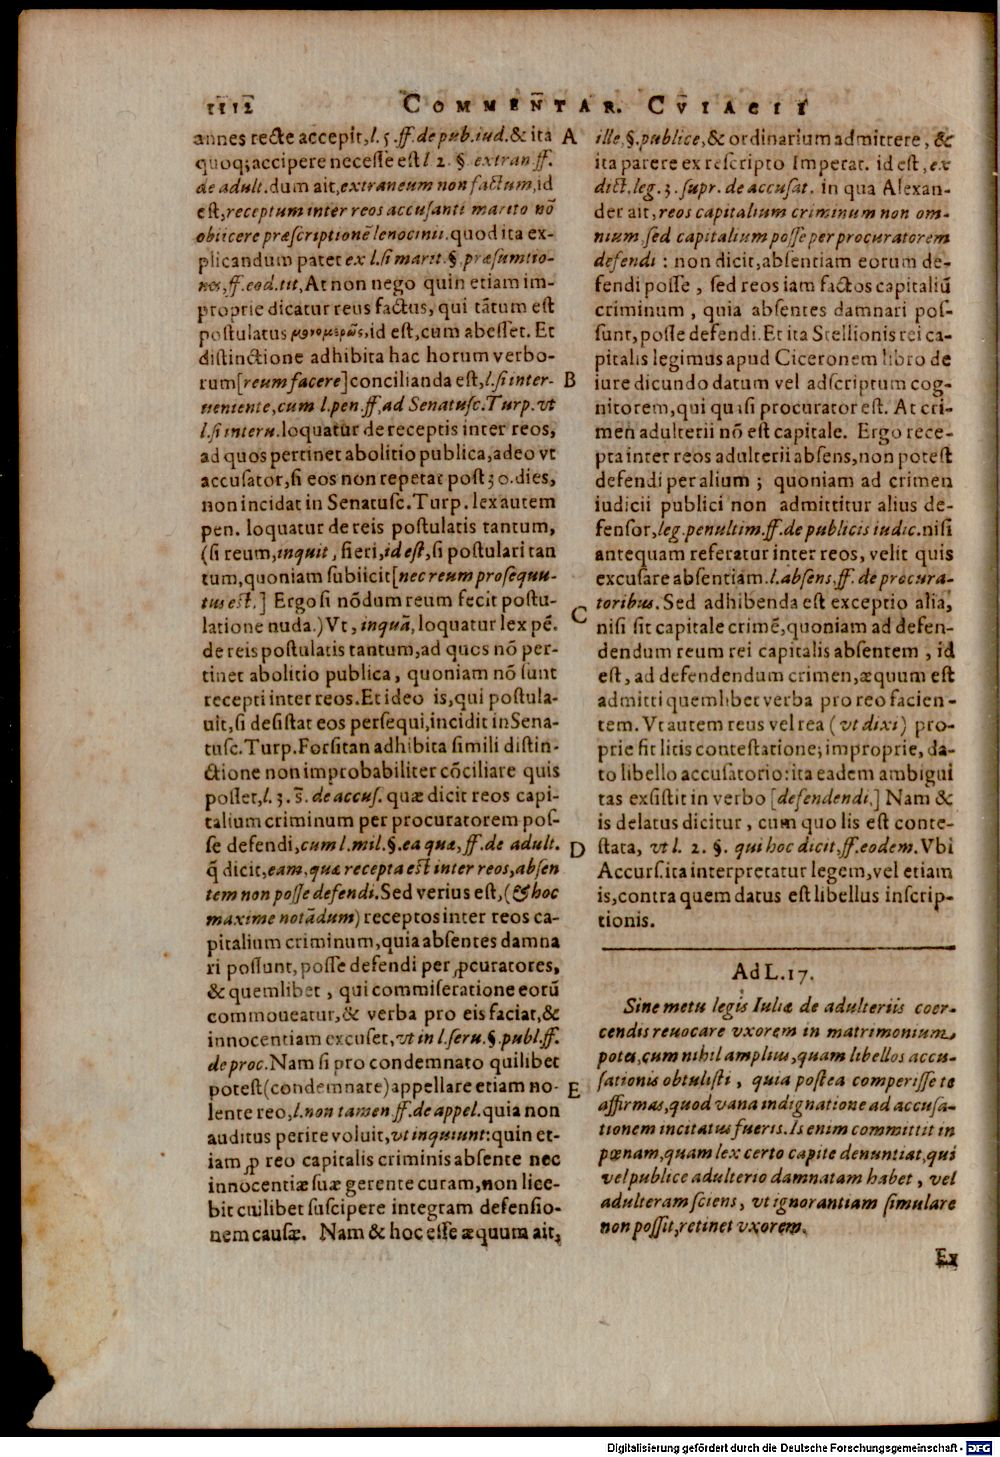 1112
COMMENTAR. CVIACII
annes recte accepit, l. 5. ff. de pub. iud. & ita
quoq; accipere necesse est l 2. §. extran ff.
de adult. dum ait, extraneum non factum, id
est, receptum inter reos accusanti marito nō
obiicere præscriptionē lenocinii. quod ita ex-
plicandum patet ex l. si marit. §. præsumtio-
nes, ff. eod. tit, At non nego quin etiam im-
proprie dicatur reus factus, qui tātum est
postulatus μονομερῶς, id est, cum abesset. Et
distinctione adhibita hac horum verbo-
rum [reum facere] concilianda est, l. si inter-
ueniente, cum l. pen. ff, ad Senatusc. Turp. vt
l. si interu. loquatur de receptis inter reos,
ad quos pertinet abolitio publica, adeo vt
accusator, si eos non repetat post 30. dies,
non incidat in Senatusc. Turp. lex autem
pen. loquatur de reis postulatis tantum,
(si reum, inquit, fieri, id est, si postulari tan
tum, quoniam subiicit [nec reum prosequu-
tus est.] Ergo si nōdum reum fecit postu-
latione nuda.) Vt, inquā, loquatur lex pē.
de reis postulatis tantum, ad quos nō per-
tinet abolitio publica, quoniam nō sunt
recepti inter reos. Et ideo is, qui postula-
uit, si desistat eos persequi, incidit in Sena-
tusc. Turp. Forsitan adhibita simili distin-
ctione non improbabiliter cōciliare quis
posset, l. 3. s̄. de accus. quæ dicit reos capi-
talium criminum per procuratorem pos-
se defendi, cum l. mil. §. ea quæ, ff. de adult.
q̄ dicit, eam, quæ recepta est inter reos, absen
tem non posse defendi. Sed verius est, (& hoc
maxime notādum) receptos inter reos ca-
pitalium criminum, quia absentes damna
ri possunt, posse defendi per ꝓcuratores,
& quemlibet, qui commiseratione eorū
commoueatur, & verba pro eis faciat, &
innocentiam excuset, vt in l. seru. §. publ. ff.
de proc. Nam si pro condemnato quilibet
potest (condemnare) appellare etiam no-
lente reo, l. non tamen ff. de appel. quia non
auditus perire voluit, vt inquiunt: quin et-
iam ꝓ reo capitalis criminis absente nec
innocentiæ suæ gerente curam, non lice-
bit cuilibet suscipere integram defensio-
nem causæ. Nam & hoc esse æquum ait,
A
B
C
D
E
ille, §. publice, & ordinarium admittere, &
ita parere ex rescripto Imperat. id est, ex
dict. leg. 3. supr. de accusat. in qua Alexan-
der ait, reos capitalium criminum non om-
nium, sed capitalium posse per procuratorem
defendi: non dicit, absentiam eorum de-
fendi posse, sed reos iam factos capitaliū
criminum, quia absentes damnari pos-
sunt, posse defendi. Et ita Stellionis rei ca-
pitalis legimus apud Ciceronem libro de
iure dicundo datum vel adscriptum cog-
nitorem, qui quasi procurator est. At cri-
men adulterii nō est capitale. Ergo rece-
pta inter reos adulterii absens, non potest
defendi per alium; quoniam ad crimen
iudicii publici non admittitur alius de-
fensor, leg. penultim. ff. de publicis iudic. nisi
antequam referatur inter reos, velit quis
excusare absentiam. l. absens, ff. de procura-
toribus. Sed adhibenda est exceptio alia,
nisi sit capitale crimē, quoniam ad defen-
dendum reum rei capitalis absentem, id
est, ad defendendum crimen, æquum est
admitti quemlibet verba pro reo facien-
tem. Vt autem reus vel rea (vt dixi) pro-
prie fit litis contestatione; improprie, da-
to libello accusatorio: ita eadem ambigui
tas exsistit in verbo [defendendi.] Nam &
is delatus dicitur, cum quo lis est conte-
stata, vt l. 2. §. qui hoc dicit, ff. eodem. Vbi
Accurs. ita interpretatur legem, vel etiam
is, contra quem datus est libellus inscrip-
tionis.
Ad L. 17.
Sine metu legis Iuliæ de adulteriis coer-
cendis reuocare vxorem in matrimonium
potes, cum nihil amplius, quam libellos accu-
sationis obtulisti, quia postea comperisse te
affirmas, quod vana indignatione ad accusa-
tionem incitatus fueris. Is enim committit in
pœnam, quam lex certo capite denuntiat, qui
vel publice adulterio damnatam habet, vel
adulteram sciens, vt ignorantiam simulare
non possit, retinet vxorem.
Ex
Digitalisierung gefördert durch die Deutsche Forschungsgemeinschaft - DFG